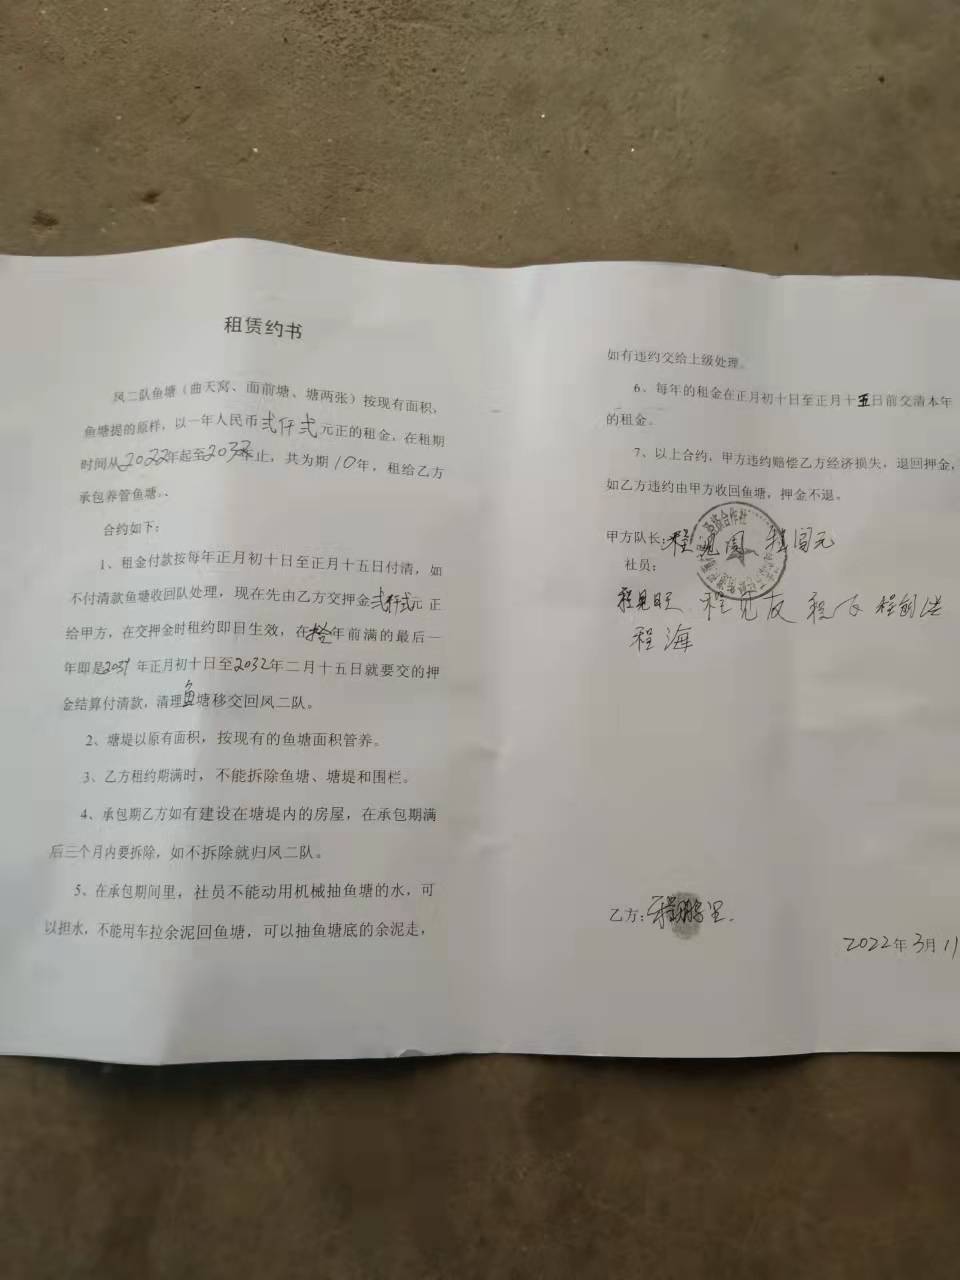 租赁约书
凤二队鱼塘（曲天窝、面前塘、塘两张）按现有面积，
鱼塘堤的原样，以一年人民币弍仟弍元正的租金，在租期
时间从2022年起至2032年止，共为期10年，租给乙方
承包养管鱼塘。.
合约如下：
1、租金付款按每年正月初十日至正月十五日付清，如
不付清款鱼塘收回队处理，现在先由乙方交押金弍仟弍元 正
给甲方，在交押金时租约即日生效，在拾年前满的最后一
年即是2031 年正月初十日至2032年二月十五日就要交的押
金结算付清款，清理鱼塘移交回凤二队。
2、塘堤以原有面积，按现有的鱼塘面积管养。
3、乙方租约期满时，不能拆除鱼塘、塘堤和围栏。
4、承包期乙方如有建设在塘堤内的房屋，在承包期满
后三个月内要拆除，如不拆除就归凤二队。
5、在承包期间里，社员不能动用机械抽鱼塘的水，可
以担水，不能用车拉余泥回鱼塘，可以抽鱼塘底的余泥走，
如有违约交给上级处理。
6、每年的租金在正月初十日至正月十五日前交清本年
的租金。
7、以上合约，甲方违约赔偿乙方经济损失，退回押金，
如乙方违约由甲方收回鱼塘，押金不退。
甲方队长：程见周、程国元
经济合作社
社员：
程见旺 程见友 程 程创洪
程海
乙方：程鹏
2022年3月11